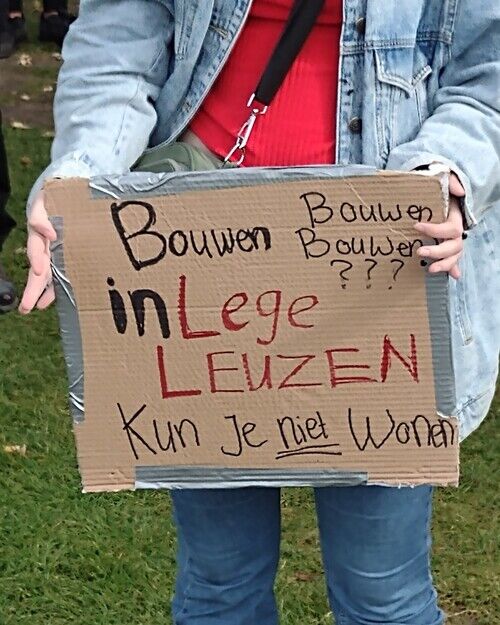 Bouwen Bouwen
Bouwen
???
in Lege
LEUZEN
Kun Je niet Wonen